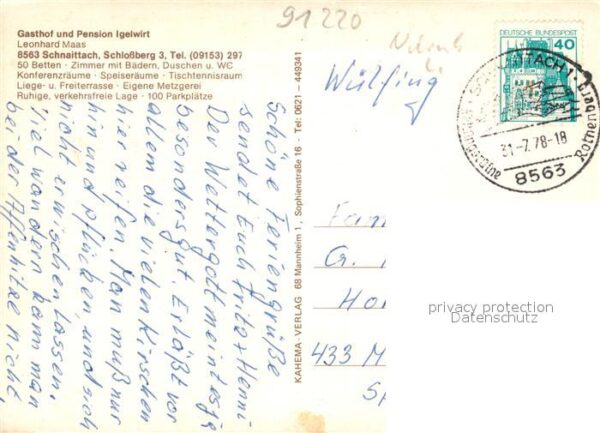 91220
Gasthof und Pension Igelwirt
Leonhard Maas
8563 Schnaittach, Schloßberg 3, Tel. (09153) 297
50 Betten · Zimmer mit Bädern, Duschen u. WC
Konferenzräume · Speiseräume · Tischtennisraum
Liege- u. Freiterrasse · Eigene Metzgerei
Ruhige, verkehrsfreie Lage · 100 Parkplätze
Schöne Feriengrüße
sendet Euch Fritz + Henni
Der Wettergott meint es ja
besonders gut. Er läßt vor
allem die vielen Kirschen
hier reifen. Man muß nur
hin und pflücken, und sich
nicht erwischen lassen.
Viel wandern kann man
bei der Affenhitze nicht.
KAHEMA-VERLAG 68 Mannheim 1, Sophienstraße 16 · Tel: 0621 - 449341
Wülfing
DEUTSCHE BUNDESPOST
40
SCHNAITTACH 1
31.-7.78-18
8563
Rothenberg
Fam
G.
Ho
433 M
Sp
privacy protection
Datenschutz